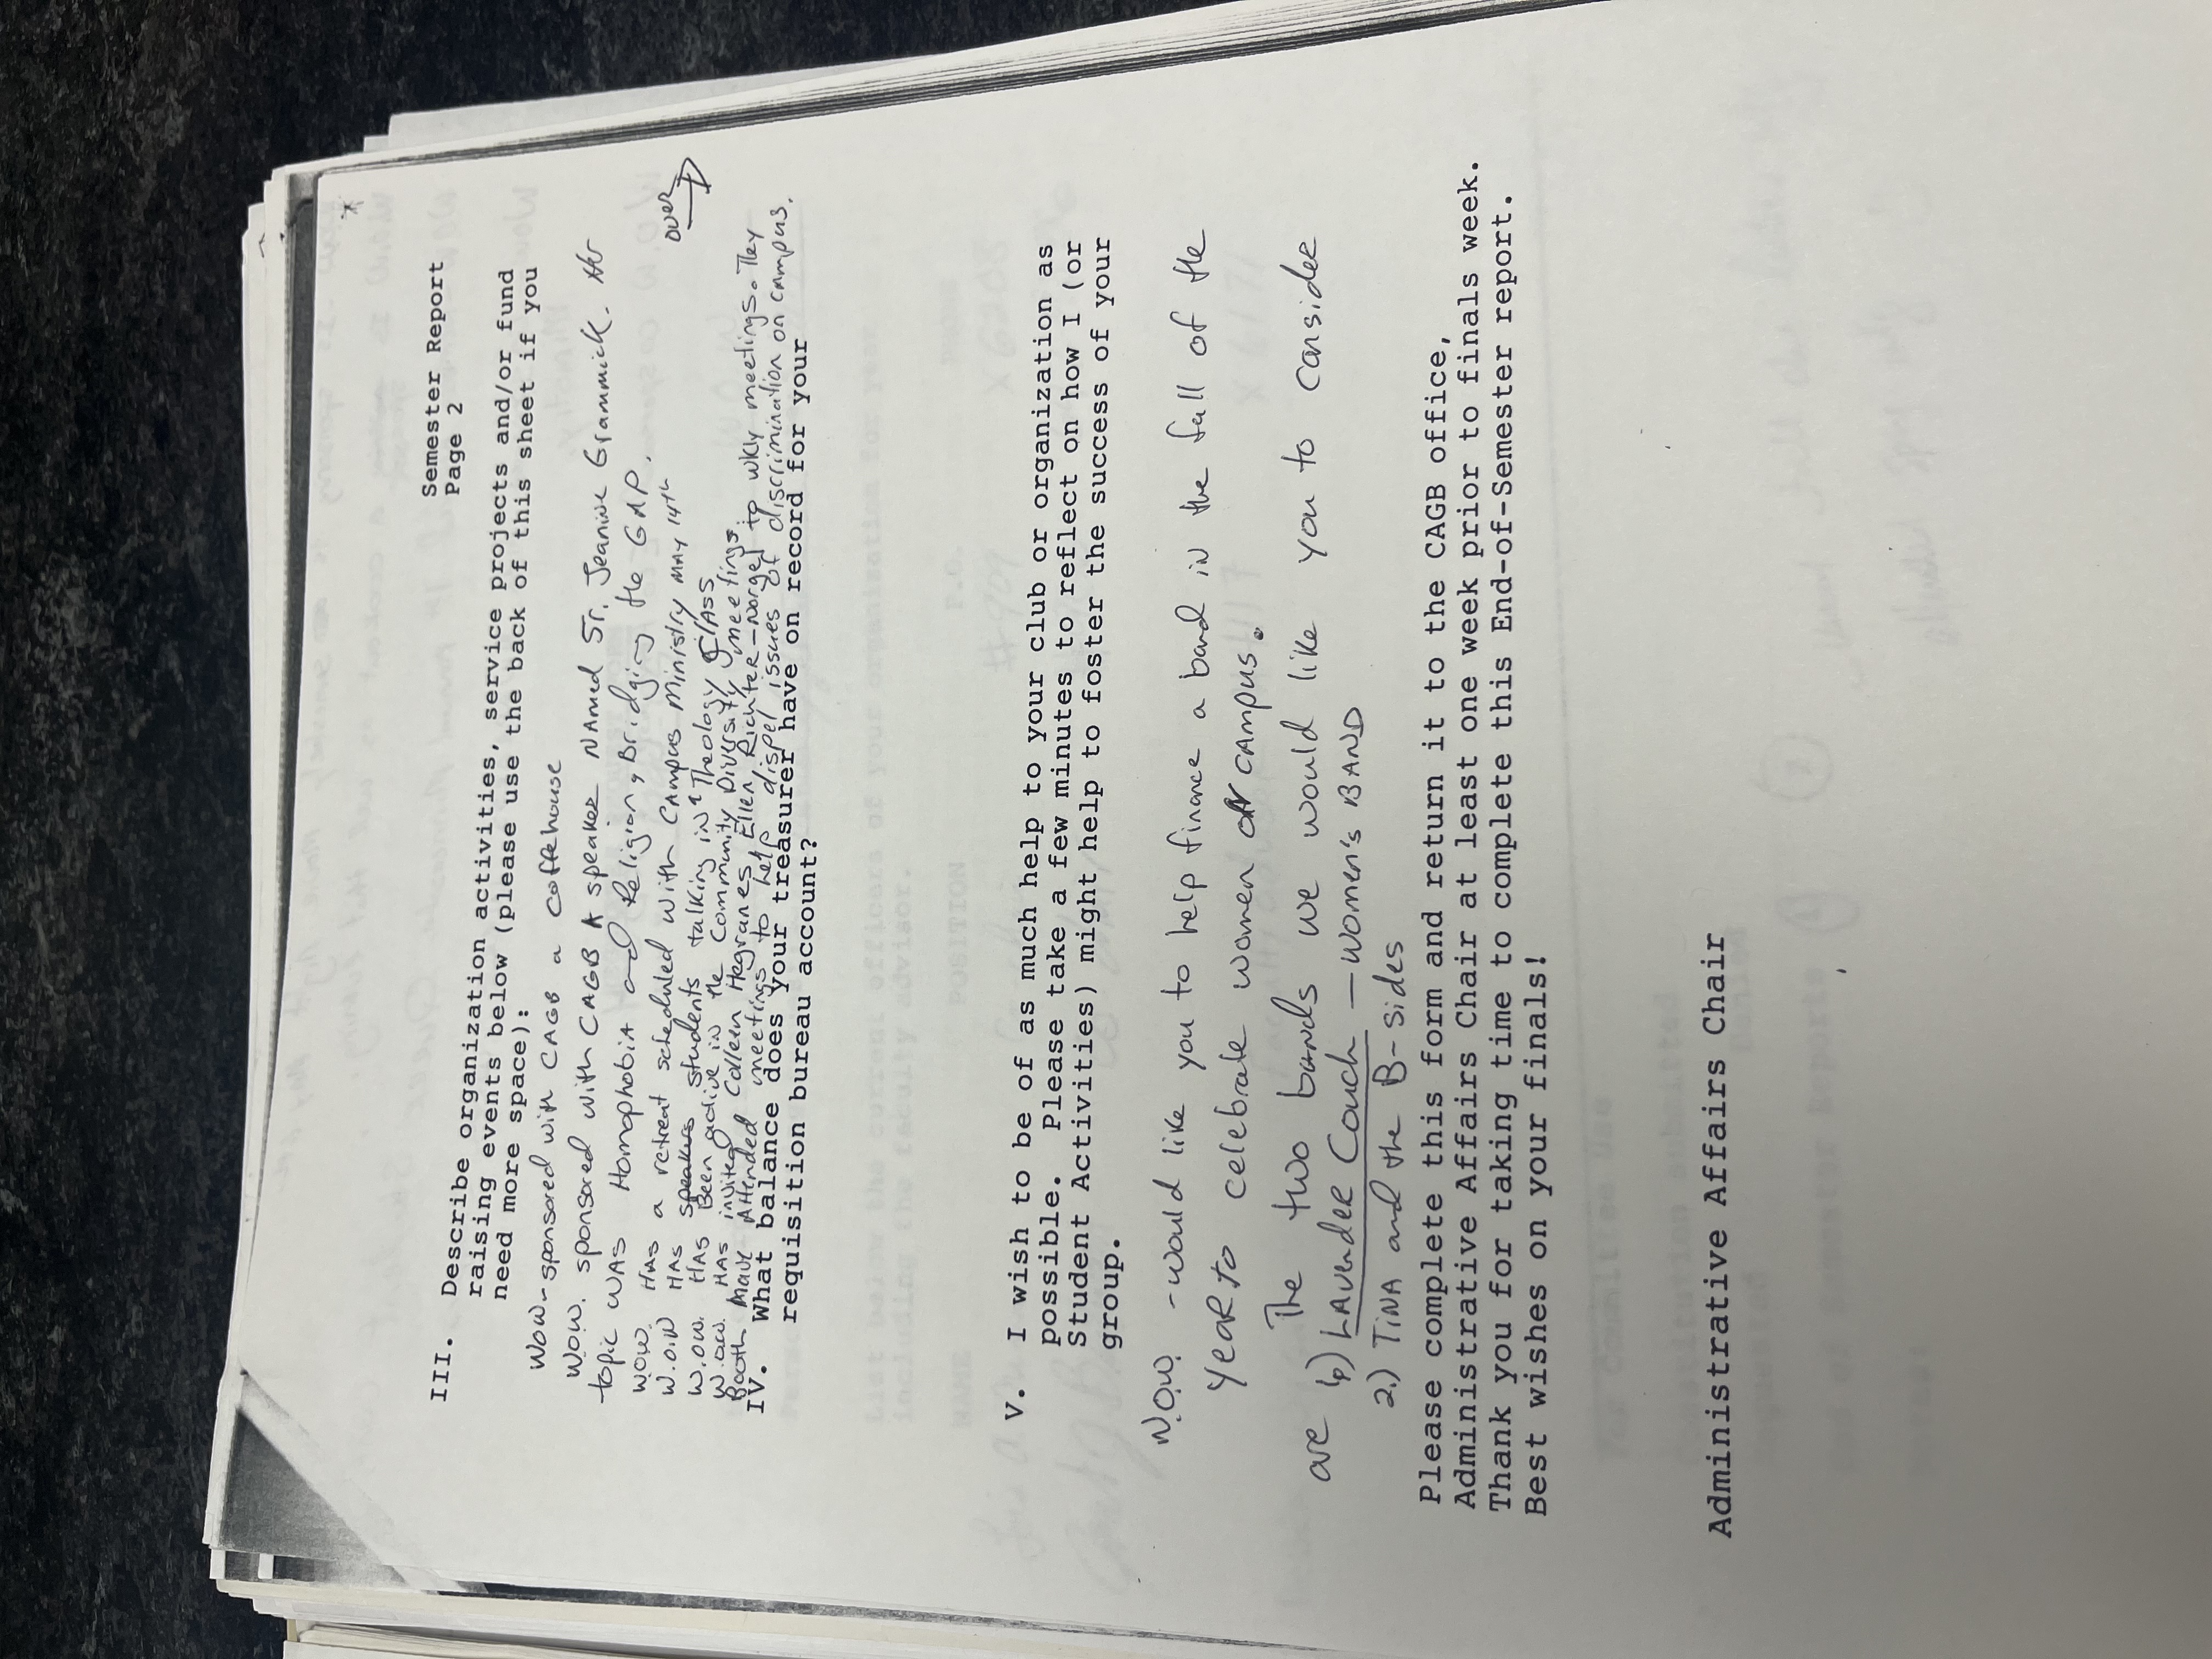 Semester Report
Page 2
III. Describe organization activities, service projects and/or fund
raising events below (please use the back of this sheet if you
need more space):
WOW - sponsored with CAGB a coffehouse
W.O.W. sponsored with CAGB A speaker NAmed Sr. Jeanine Grammick. Her
topic WAS Homophobia and Religion, Bridging the GAP.
W.O.W. HAS a retreat scheduled with CAmpus Ministry MAY 14th
W.O.W HAS speakers students talking in a Theology ClASS
W.O.W. HAS Been active in the Community Diversity meetings.
W.O.W. HAS invited Colleen Hegranes, Ellen, Richter-Norgel to wkly meetings. They
Booth have Attended meetings to help dispel issues of discrimination on cAmpus.
over
IV. What balance does your treasurer have on record for your
requisition bureau account?
V. I wish to be of as much help to your club or organization as
possible. Please take a few minutes to reflect on how I (or
Student Activities) might help to foster the success of your
group.
W.O.W. - would like you to help finance a band in the fall of the
YeaR to celebrate women oN cAmpus.
The two bands we would like you to consideR
are 1) LAvendeR Couch - WOMen's BAND
2.) TiNA and the B-sides
Please complete this form and return it to the CAGB office,
Administrative Affairs Chair at least one week prior to finals week.
Thank you for taking time to complete this End-of-Semester report.
Best wishes on your finals!
Administrative Affairs Chair